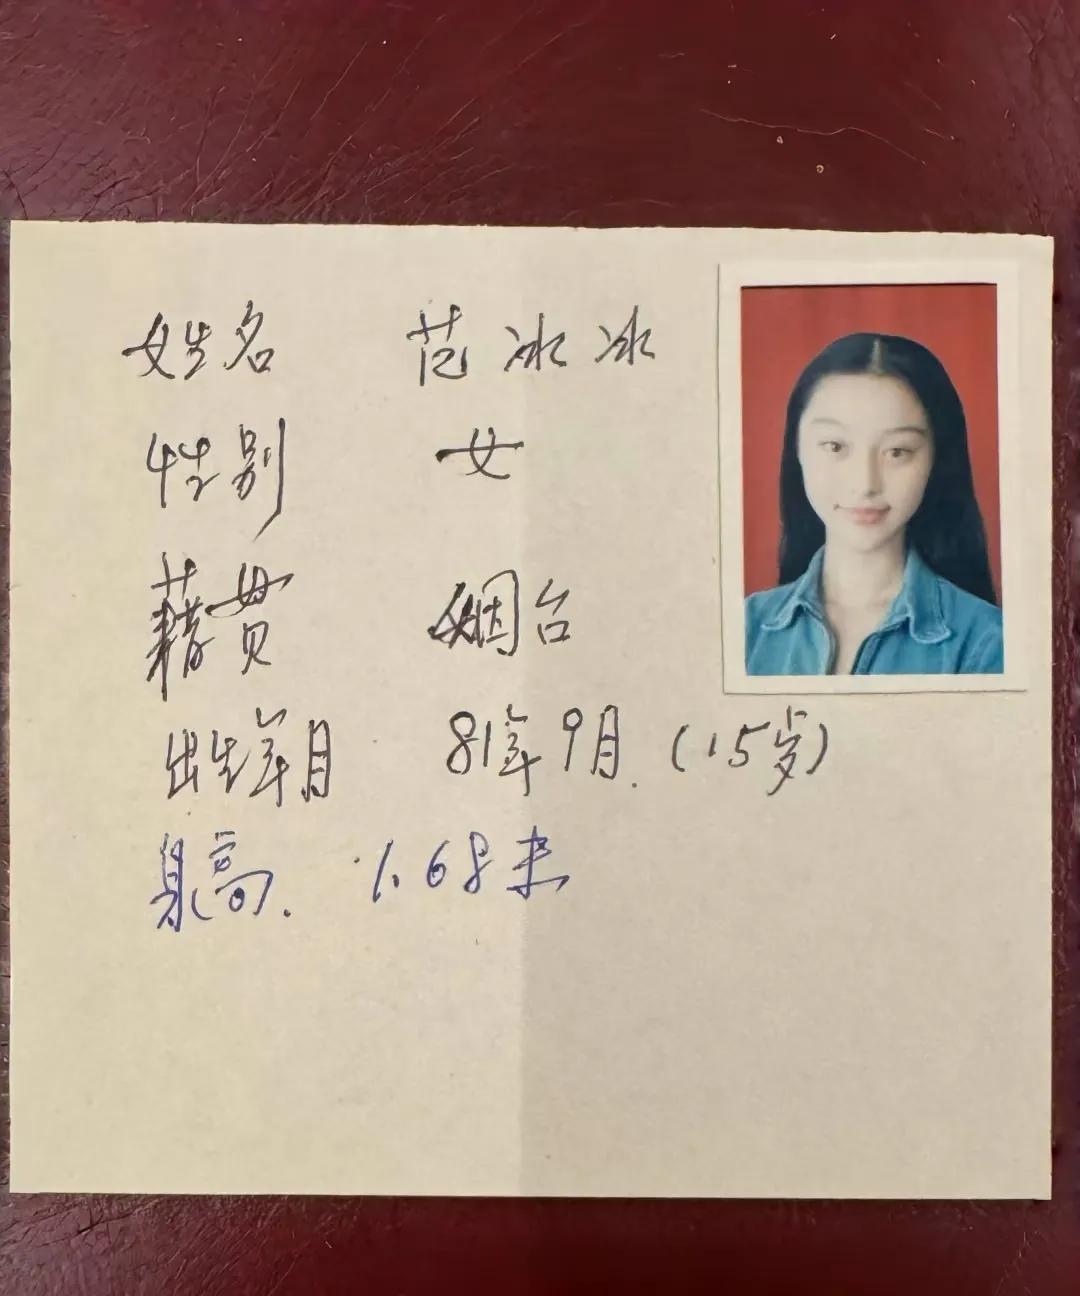 姓名 范冰冰
性别 女
藉贯 烟台
出生年月 81年9月.(15岁)
身高. 1.68米